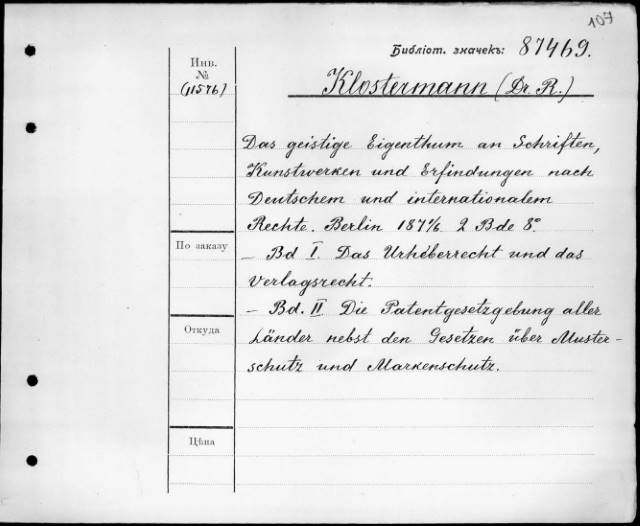 107
Библіот. значекъ: 87469.
Инв.
№
(11576)
Klostermann (Dr. R.)
Das geistige Eigenthum an Schriften,
Kunstwerken und Erfindungen nach
Deutschem und internationalem
Rechte. Berlin 1871/6. 2 Bde 8°
— Bd I. Das Urheberrecht und das
Verlagsrecht.
— Bd. II Die Patentgesetzgebung aller
Länder nebst den Gesetzen über Muster-
schutz und Markenschutz.
По заказу
Откуда
Цѣна